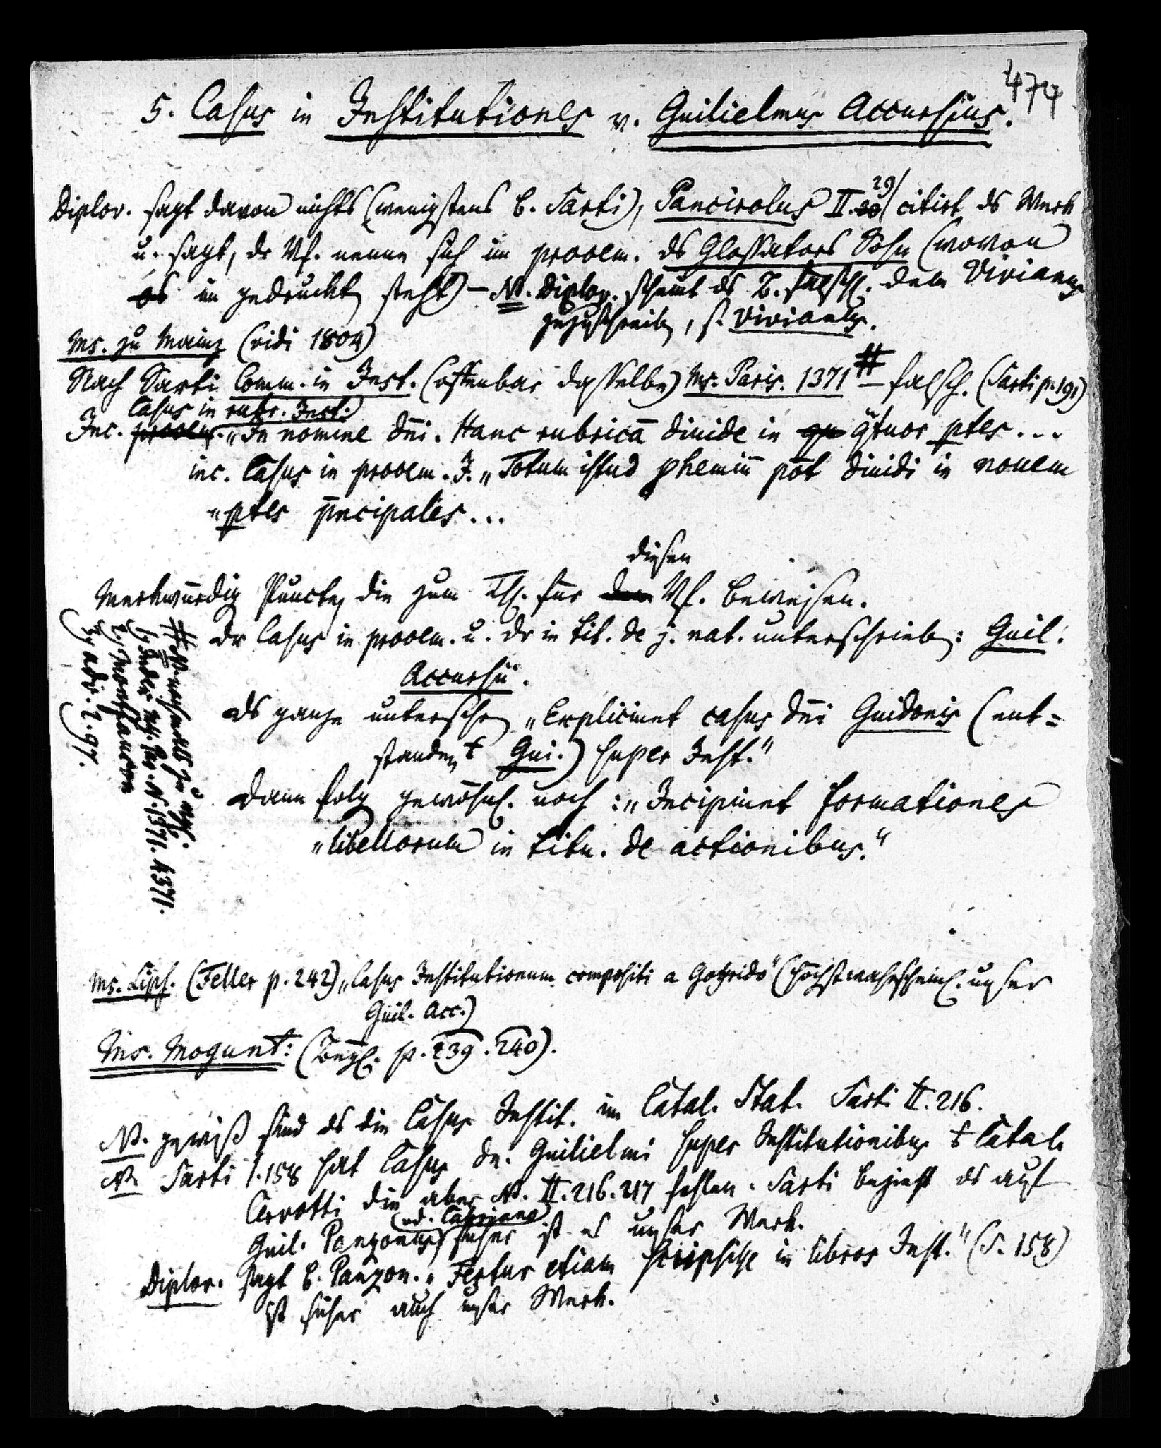 474
5. Casus in Institutiones v. Guilielmus Accursius.
29/
Diplov. sagt davon nichts (wenigstens b. Sarti), Pancirolus II. 30 citirt ds Werk
u. sagt, dr Vf. nenne sich im prooem. ds Glossators Sohn (wovon
es im gedruckten steht) – NB. Diplov. scheint ds Z. falsch. dem Vivianus
zuzuschreiben, s. Vivianus.
Ms. zu Mainz (vidi 1804)
Nach Sarti Comm. in Inst. (offenbar dasselbe) Ms. Paris. 1371 # falsch. (Sarti p. 191)
Casus in rubr. Inst.
Inc. prooem. „In nomine dni. Hanc rubricā diuide in qu qtuor ptes ...
inc. Casus in prooem. J. „Totum istud phemiū pōt diuidi in nouem
„ptes pncipales ...
diesen
Merkwürdige Puncte, die zum Th. für den Vf. beweisen.
Dr Casus in prooem. u. dr in tit. de j. nat. unterschrieben: Guil.
Accursii.
ds ganze unterschr. „Expliciunt casus dni Guidonis (ent=
standen † Gui.) super Inst.“
Dann folgt gewöhnl. noch: „Incipiunt formationes
„libellorum in titu. de actionibus.“
Montfaucon
1371. 4371.
Ms. Lips. (Feller p. 242) „Casus Institutionum compositi a Gotfrido“ (höchstwahrscheinl. unser
Guil. Acc.)
Ms. Mogunt: (p. 239. 240).
NB. gewiß sind ds die Casus Instit. im Catal. Stat. Sarti II. 216.
NB. Sarti I. 158 hat Casus dn. Guilielmi super Institutionibus † Catal.
Cervotti die aber NB. II. 216. 217 fehlen. Sarti bezieht ds auf
(od. Capriana)
Guil. Panzonus, sicher ist es unser Werk.
Diplov. sagt b. Panzon. „Fertur etiam scripsisse in libros Inst.“ (S. 158)
ist sicher auch unser Werk.